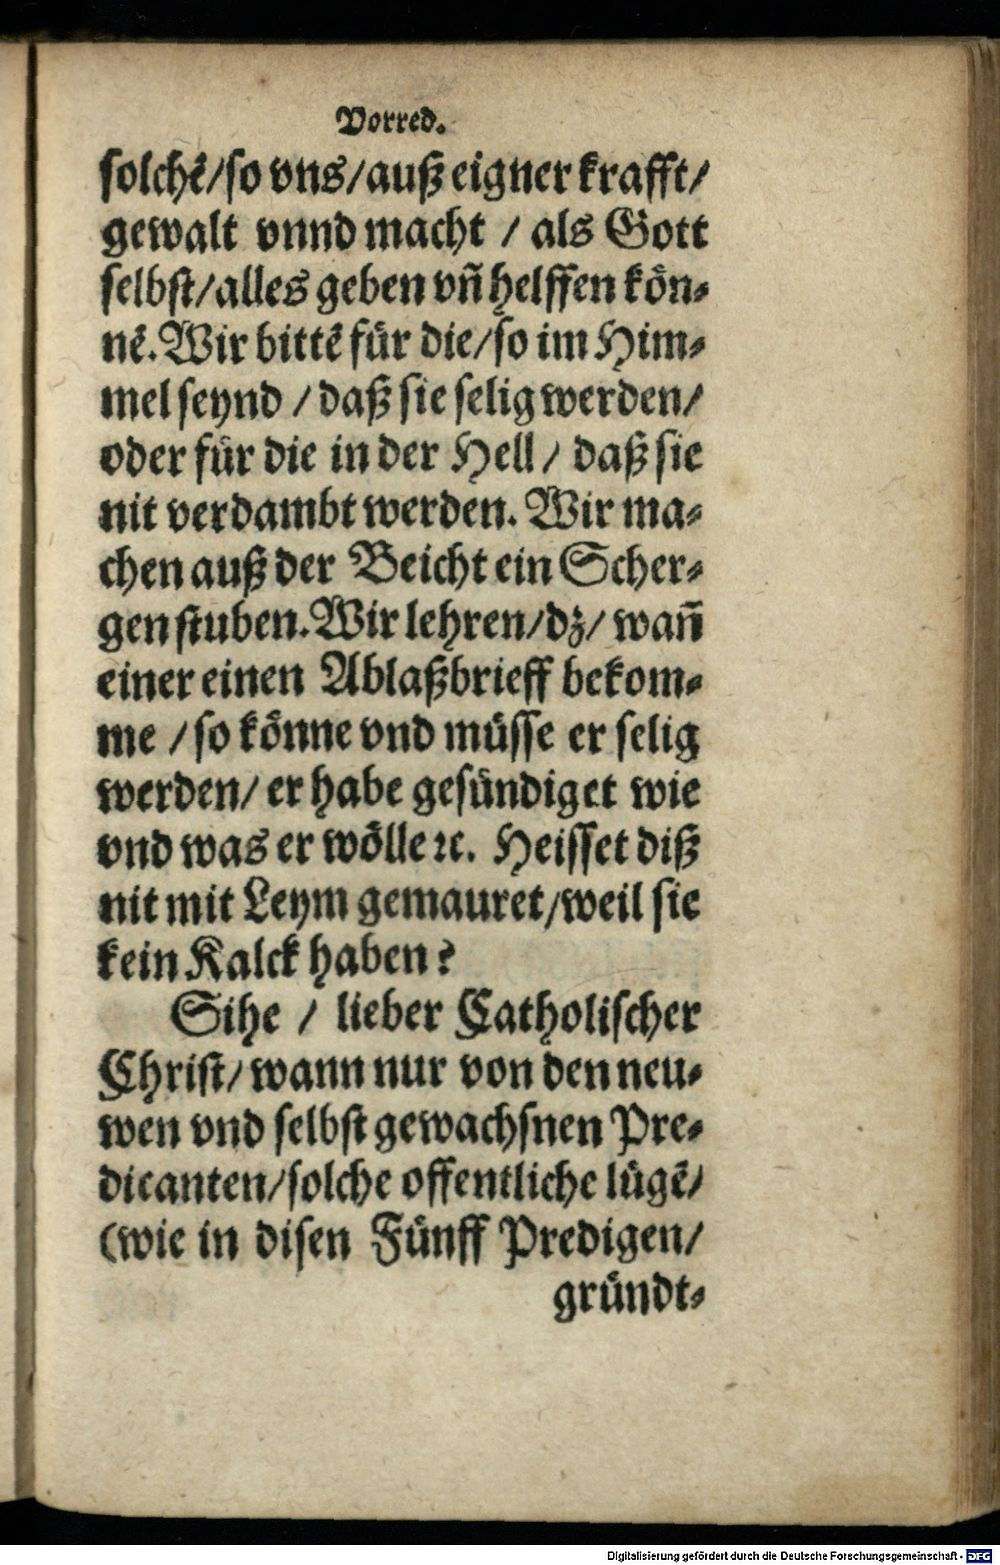 Vorred.
solchẽ/so vns/auß eigner krafft/
gewalt vnnd macht / als Gott
selbst/alles geben vñ helffen kön⸗
nẽ. Wir bittẽ für die/so im Him⸗
mel seynd / daß sie selig werden/
oder für die in der Hell / daß sie
nit verdambt werden. Wir ma⸗
chen auß der Beicht ein Scher⸗
genstuben. Wir lehren/dz/ wañ
einer einen Ablaßbrieff bekom⸗
me / so könne vnd müsse er selig
werden/ er habe gesündiget wie
vnd was er wölle ꝛc. Heisset diß
nit mit Leym gemauret/weil sie
kein Kalck haben?
Sihe / lieber Catholischer
Christ/ wann nur von den neu⸗
wen vnd selbst gewachsnen Pre⸗
dicanten/solche offentliche lügẽ/
(wie in disen Fünff Predigen/
gründt⸗
Digitalisierung gefördert durch die Deutsche Forschungsgemeinschaft - DFG